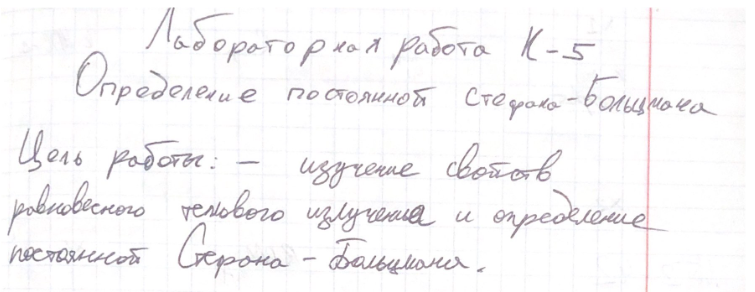 Лабораторная работа К-5
Определение постоянной Стефана-Больцмана
Цель работы: - изучение свойств
равновесного теплового излучения и определение
постоянной Стефана-Больцмана.